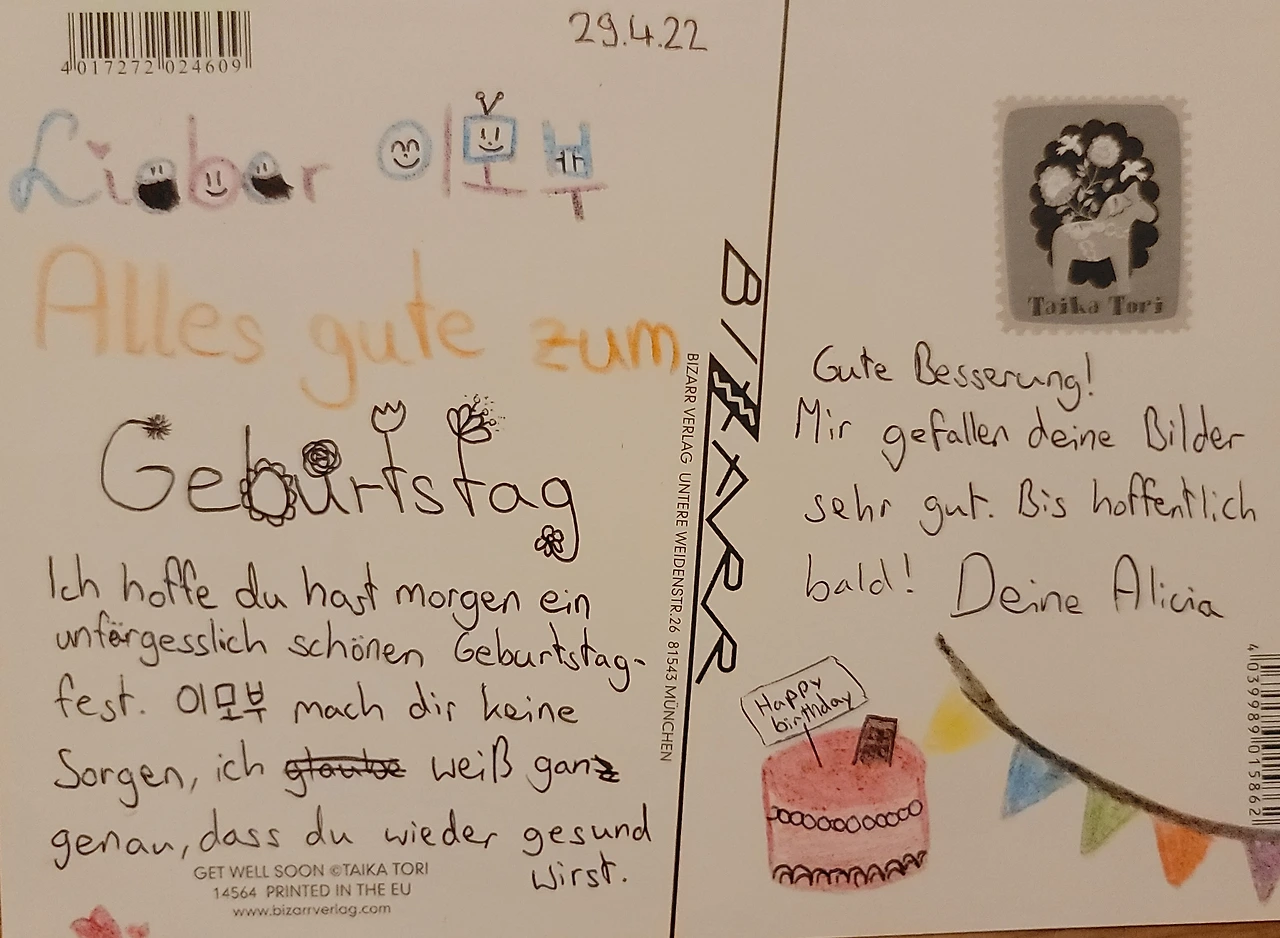 4 017272 024609
29.4.22
Lieber 이모부
Alles gute zum
Geburtstag
Ich hoffe du hast morgen ein
unfärgesslich schönen Geburtstag-
fest. 이모부 mach dir keine
Sorgen, ich glaube weiß ganz
genau, dass du wieder gesund
wirst.
GET WELL SOON ©TAIKA TORI
14564 PRINTED IN THE EU
www.bizarrverlag.com
BIZARR
BIZARR VERLAG UNTERE WEIDENSTR.26 81543 MÜNCHEN
Taika Tori
Gute Besserung!
Mir gefallen deine Bilder
sehr gut. Bis hoffentlich
bald! Deine Alicia
Happy
birthday
4 039989 015862